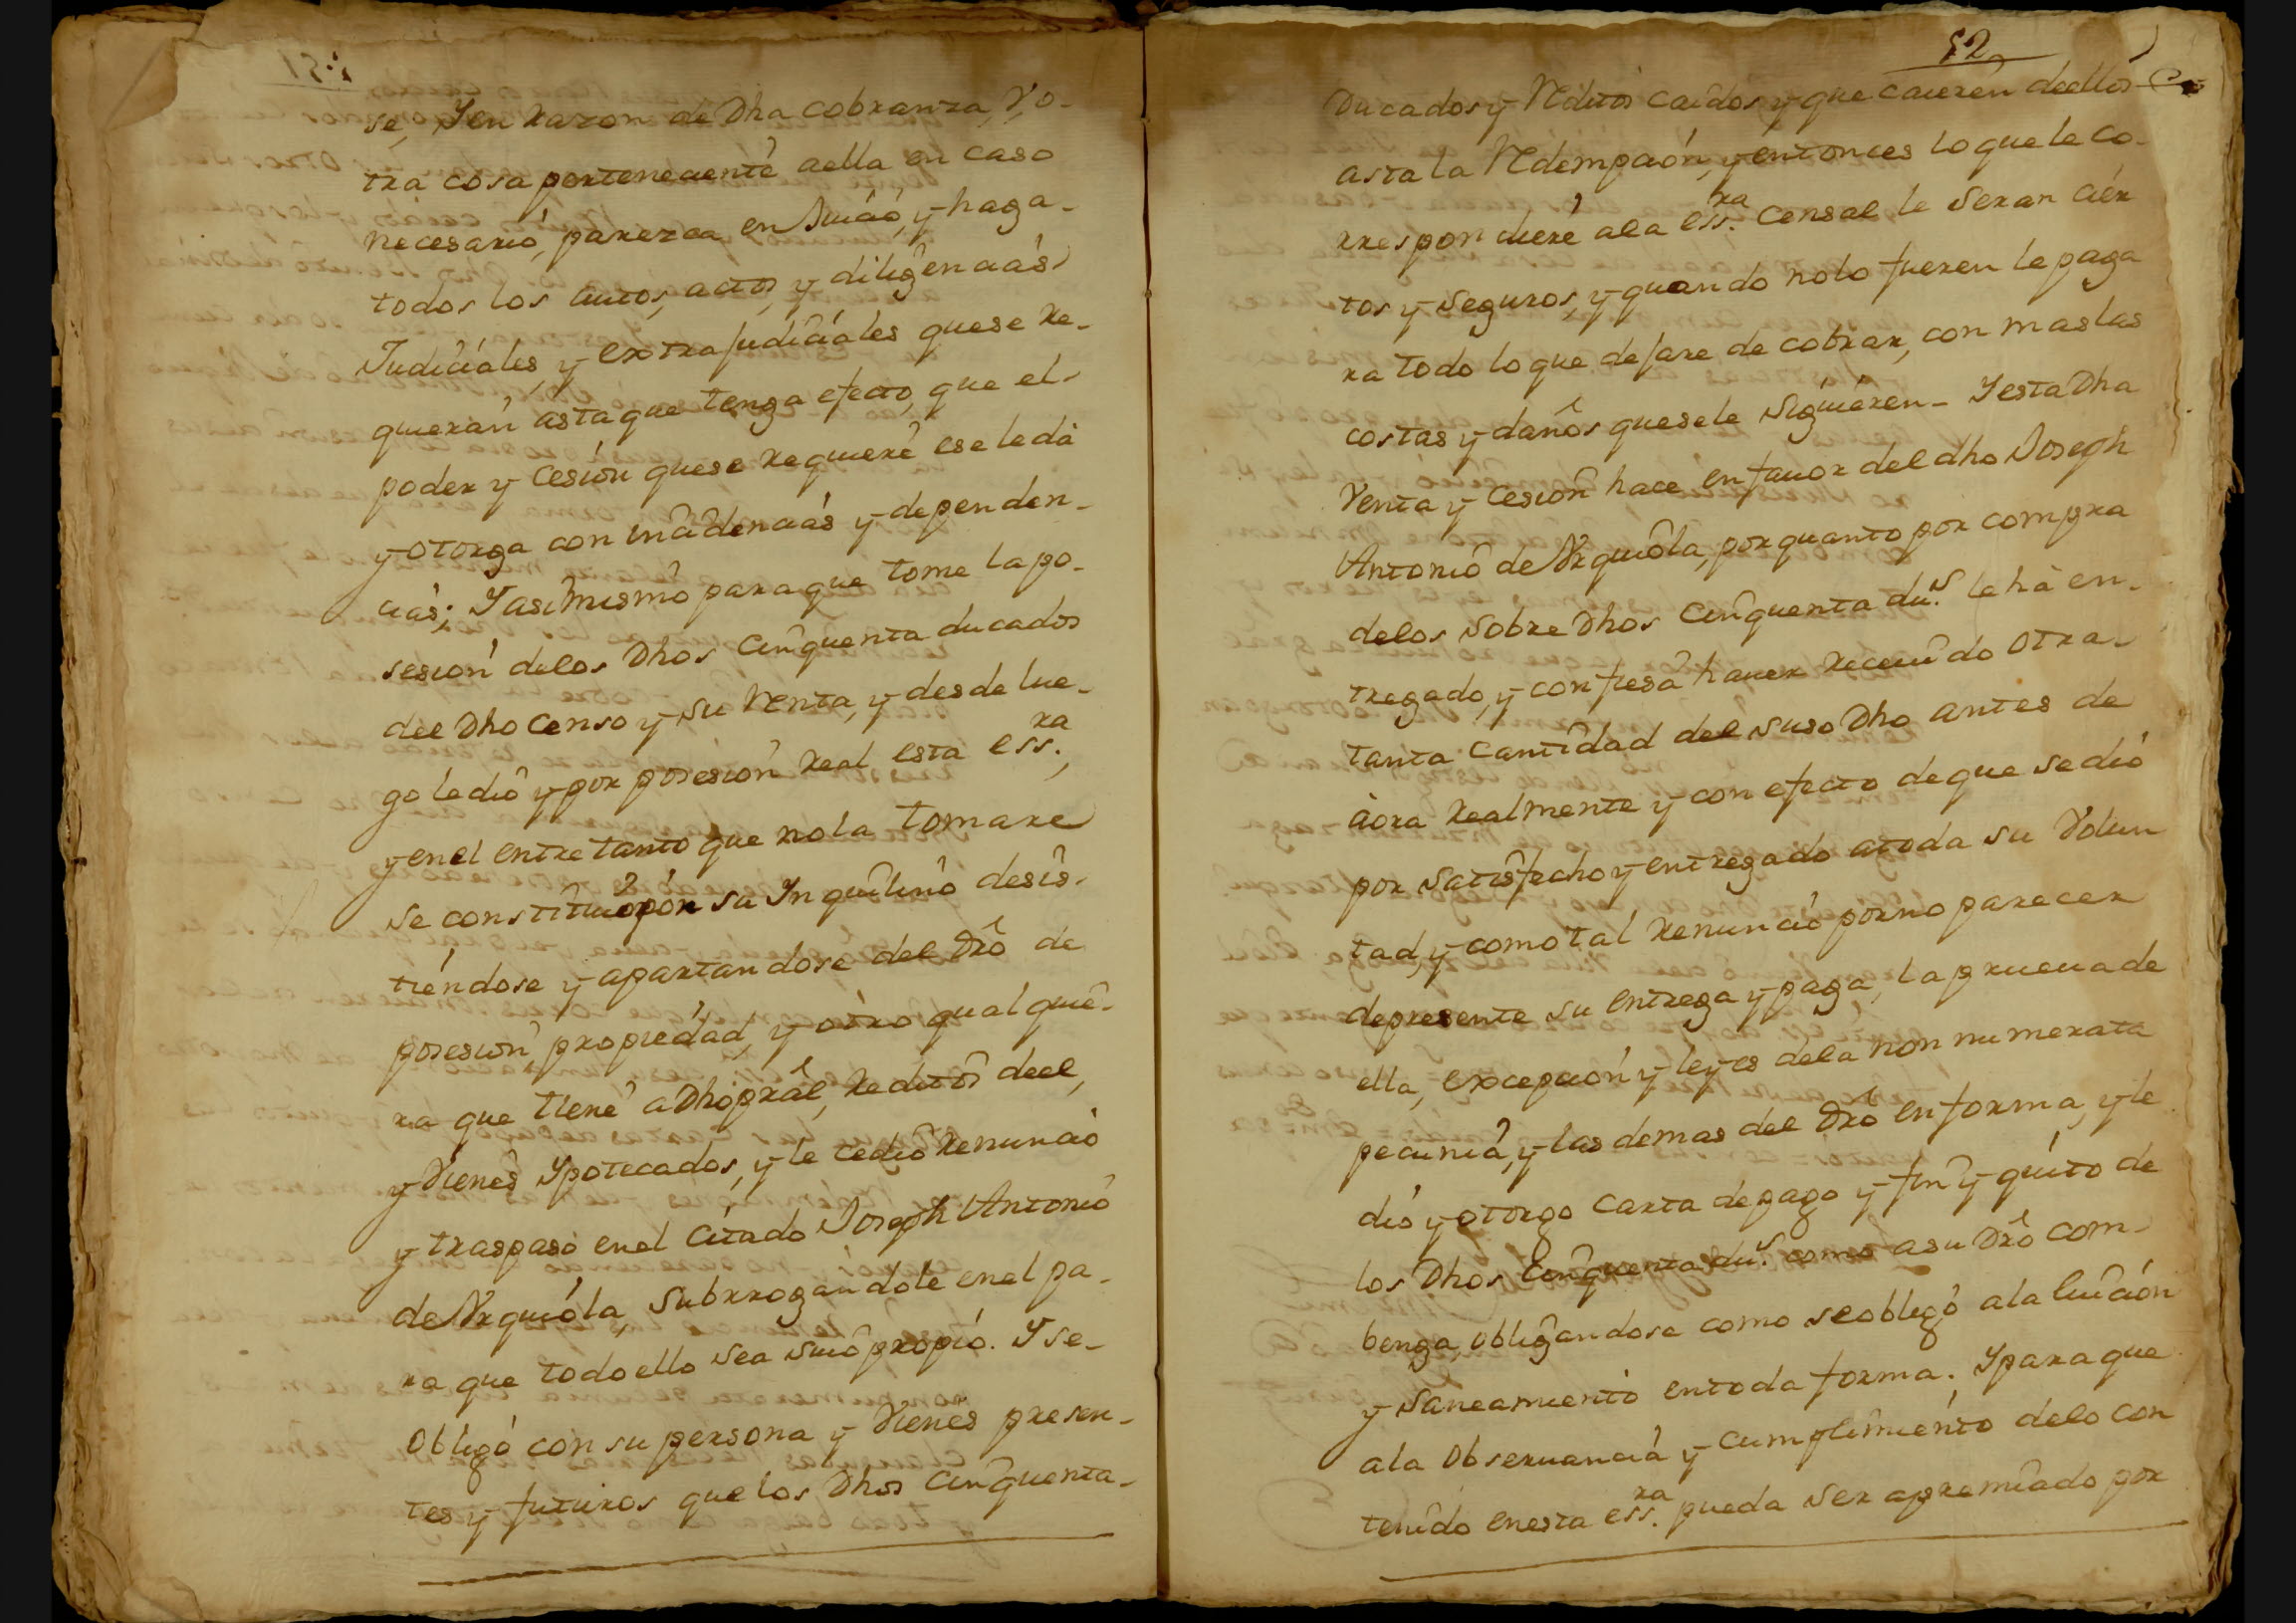 se, Y en razon de Dha cobranza, Y o-
tra cosa perteneciente aella en caso
necesario, parezca en Juicio, y haga-
todos los autos, actos, y diligencias
Judiciales, y extrajudiciales que se re-
quieran asta que tenga efecto, que el
poder y cesion que se requiere ese le dà
y otorga con incidencias y dependen-
cias; Y asimismo para que tome la po-
sesion delos Dhos cinquenta ducados
del Dho censo y su Renta, y desde lue-
go le dio y por posesion Real esta ess.ra,
y enel entre tanto que no la tomare
se constituio por su Inquilino desis-
tiendose y apartandose del Dro de
posesion, propiedad, y otro qualquie-
ra que tiene a Dho pral, Reditos deel,
y Vienes Ypotecados, y le cedio Renuncio
y traspaso enel Citado Joseph Antonio
de Vrquiola, Subrrogandole enel pa-
ra que todo ello sea suio propio. Y se-
obligó con su persona y Vienes presen-
tes y futuros que los Dhos cinquenta-
52
Ducados y Reditos caidos y que caieren deellos
asta la Redempcion, y entonces lo que le co-
rrespondiere ala ess.ra Censal le Seran cier
tos y Seguros, y quando nolo fueren le paga
ra todo lo que dejare de cobrar, con mas las
costas y daños que se le Siguieren- Y esta Dha
Venta y Cesion hace en fauor del dho Joseph
Antonio de Vrquiola, por quanto por compra
delos Sobre Dhos Cinquenta du.s le hà en-
tregado, y confiesa hauer Receuido otra-
tanta cantidad del suso Dho antes de
àora Realmente y con efecto de que se dio
por Satisfecho y entregado atoda su Volun
tad, y como tal Renuncio por no parecer
de presente su entrega y paga, la prueua de
ella, excepcion y leyes dela non numerata
pecunia, y las demas del Dro en forma, y le
dió y otorgo Carta de pago y fin y quito de
los Dhos Cinquenta du.s como a su Dro com-
benga, obligandose como se obligó ala euicion
y Saneamiento en toda forma. Y para que
ala Obseruancia y cumplimiento delo con
tenido enesta ess.ra pueda Ser apremiado por